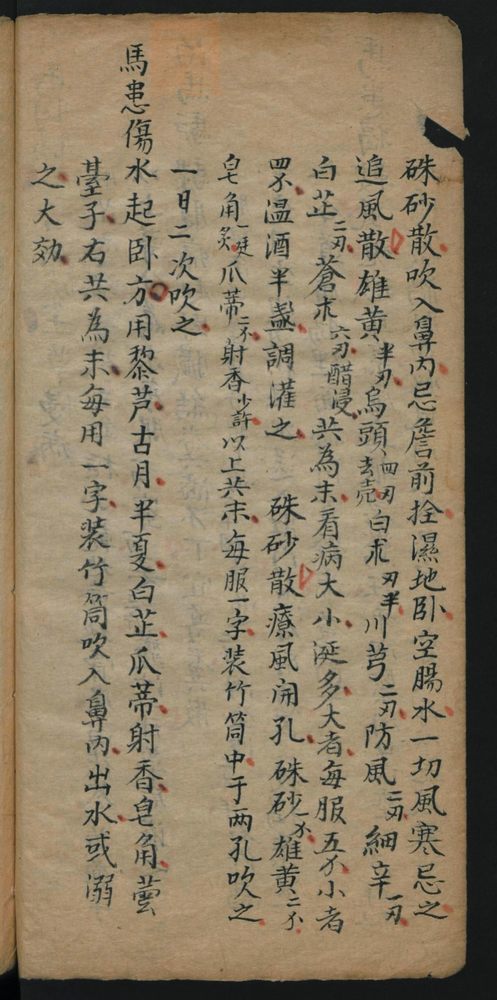 硃砂散吹入鼻內忌簷前拴濕地卧空腸水一切風寒忌之
追風散雄黃半刄烏頭四刄去壳白朮刄半川芎二刄防風二刄細辛一刄
白芷二刄蒼朮六刄醋浸共為末看病大小涎多大者每服五不小者
四不溫酒半盞調灌之 硃砂散療風開孔硃砂不雄黃二不
皂角一挺炙爪蒂二不射香少許以上共末每服一字装竹筒中于兩孔吹之
一日二次吹之
馬患傷水起卧方用藜芦古月半夏白芷爪蒂射香皂角蕓
薹子右共為末每用一字装竹筒吹入鼻內出水或溺
之大効